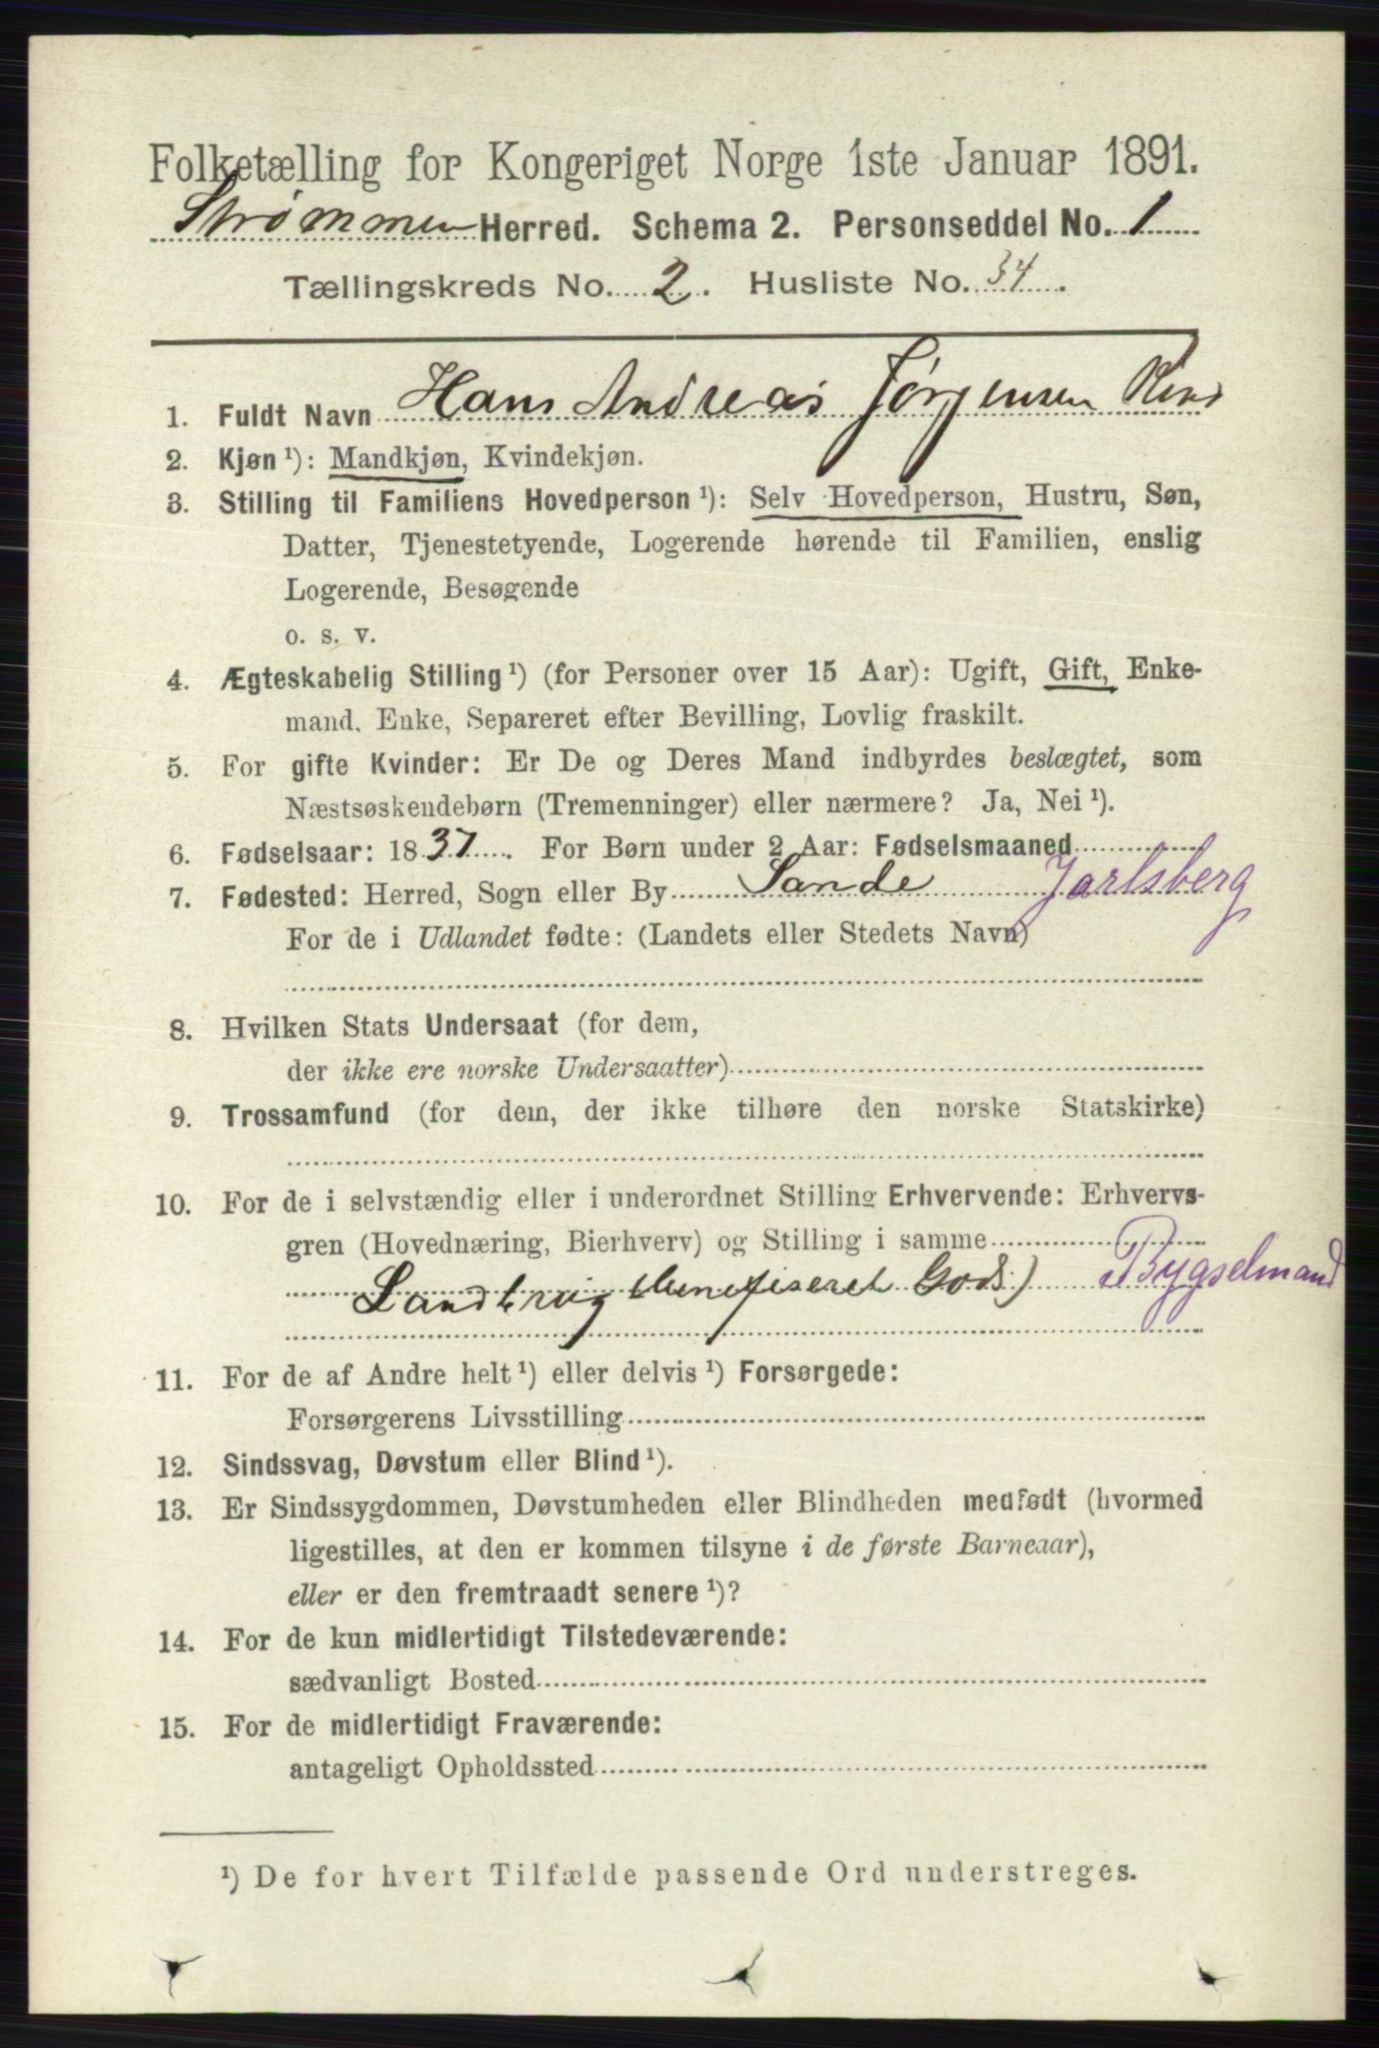 Folketælling for Kongeriget Norge 1ste Januar 1891.
Strømmen Herred. Schema 2. Personseddel No. 1
Tællingskreds No. 2. Husliste No. 34.
1. Fuldt Navn Hans Andreas Jørgensen
2. Kjøn ¹): Mandkjøn, Kvindekjøn.
3. Stilling til Familiens Hovedperson ¹): Selv Hovedperson, Hustru, Søn,
Datter, Tjenestetyende, Logerende hørende til Familien, enslig
Logerende, Besøgende
o. s. v.
4. Ægteskabelig Stilling ¹) (for Personer over 15 Aar): Ugift, Gift, Enke-
mand, Enke, Separeret efter Bevilling, Lovlig fraskilt.
5. For gifte Kvinder: Er De og Deres Mand indbyrdes beslægtet, som
Næstsøskendebørn (Tremenninger) eller nærmere? Ja, Nei ¹).
6. Fødselsaar: 1837. For Børn under 2 Aar: Fødselsmaaned
7. Fødested: Herred, Sogn eller By Sande Jarlsberg
For de i Udlandet fødte: (Landets eller Stedets Navn)
8. Hvilken Stats Undersaat (for dem,
der ikke ere norske Undersaatter)
9. Trossamfund (for dem, der ikke tilhøre den norske Statskirke)
10. For de i selvstændig eller i underordnet Stilling Erhvervende: Erhvervs-
gren (Hovednæring, Bierhverv) og Stilling i samme
Landbrug Gods) Bygselmand
11. For de af Andre helt ¹) eller delvis ¹) Forsørgede:
Forsørgerens Livsstilling
12. Sindssvag, Døvstum eller Blind ¹).
13. Er Sindssygdommen, Døvstumheden eller Blindheden medfødt (hvormed
ligestilles, at den er kommen tilsyne i de første Barneaar),
eller er den fremtraadt senere ¹)?
14. For de kun midlertidigt Tilstedeværende:
sædvanligt Bosted
15. For de midlertidigt Fraværende:
antageligt Opholdssted
¹) De for hvert Tilfælde passende Ord understreges.